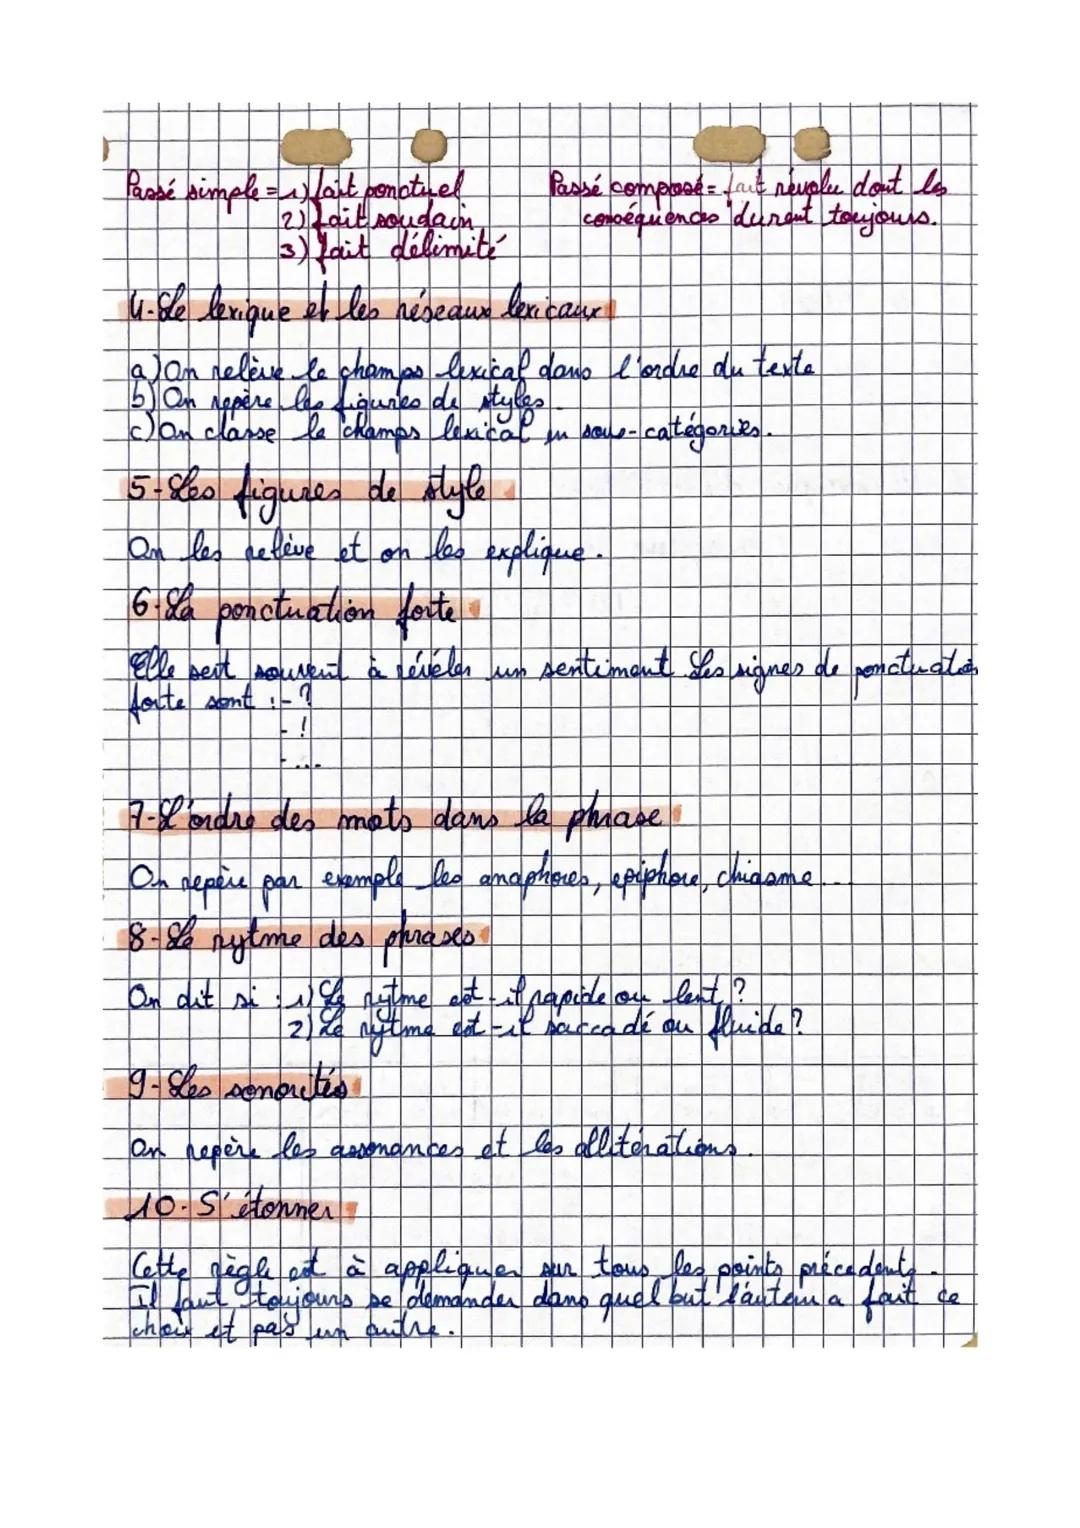 Passé simple = 1) fait ponctuel
2) fait soudain
3) fait délimité
Passé composé = fait révolu dont les
conséquences durent toujours.
4-Le lexique et les réseaux lexicaux
a) On relève le champs lexical dans l'ordre du texte
b) On repère les figures de styles.
c) On classe le champs lexical en sous-catégories.
5-Les figures de style
On les relève et on les explique.
6-La ponctuation forte
Elle sert souvent à révéler un sentiment. Les signes de ponctuation
forte sont : - ?
- !
- ...
7-L'ordre des mots dans la phrase
On repère par exemple les anaphores, epiphore, chiasme...
8-Le rytme des phrases
On dit si : 1) Le rytme est-il rapide ou lent ?
2) Le rytme est-il saccadé ou fluide ?
9-Les sonorités
On repère les assonances et les allitérations.
10-S'étonner
Cette règle est à appliquer sur tous les points précedents.
Il faut toujours se demander dans quel but l'auteur a fait ce
choix et pas un autre.